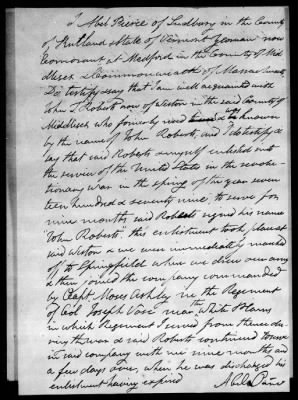 I Abel Peirce of Sudbury in the County
of Rutland State of Vermont yeoman now
commorant at Medford in the County of Mid
dlesex & Commonwealth of Massachusetts
Do testify & say that I am well acquainted with
John S Roberts now of Weston in the said County of
Middlesex who formerly was known
by the name of John Roberts, and I do testify &
say that said Roberts & myself enlisted into
the service of the United States in the revolu-
tionary war in the spring of the year seven
teen hundred & seventy nine, to serve for
nine months, said Roberts signed his name
"John Roberts". this enlistment took place at
said Weston & we were immediately marched
off to Springfield where we drew our arms
& then joined the company commanded
by Capt. Moses Ashley in the Regiment
of Col Joseph Vose near the White Plains
in which Regiment I served from thence du-
ring the war & said Roberts continued to serve
in said company with me nine months and
a few days over, when he was discharged his
enlistment having expired
Abel Peirce